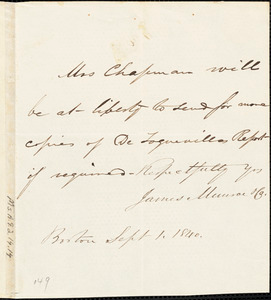 Mrs Chapman will
be at liberty to send for more
copies of De Toquevilles Report
if required. Respectfully Yrs
James Munroe & Co.
Boston Sept 1. 1840.
149